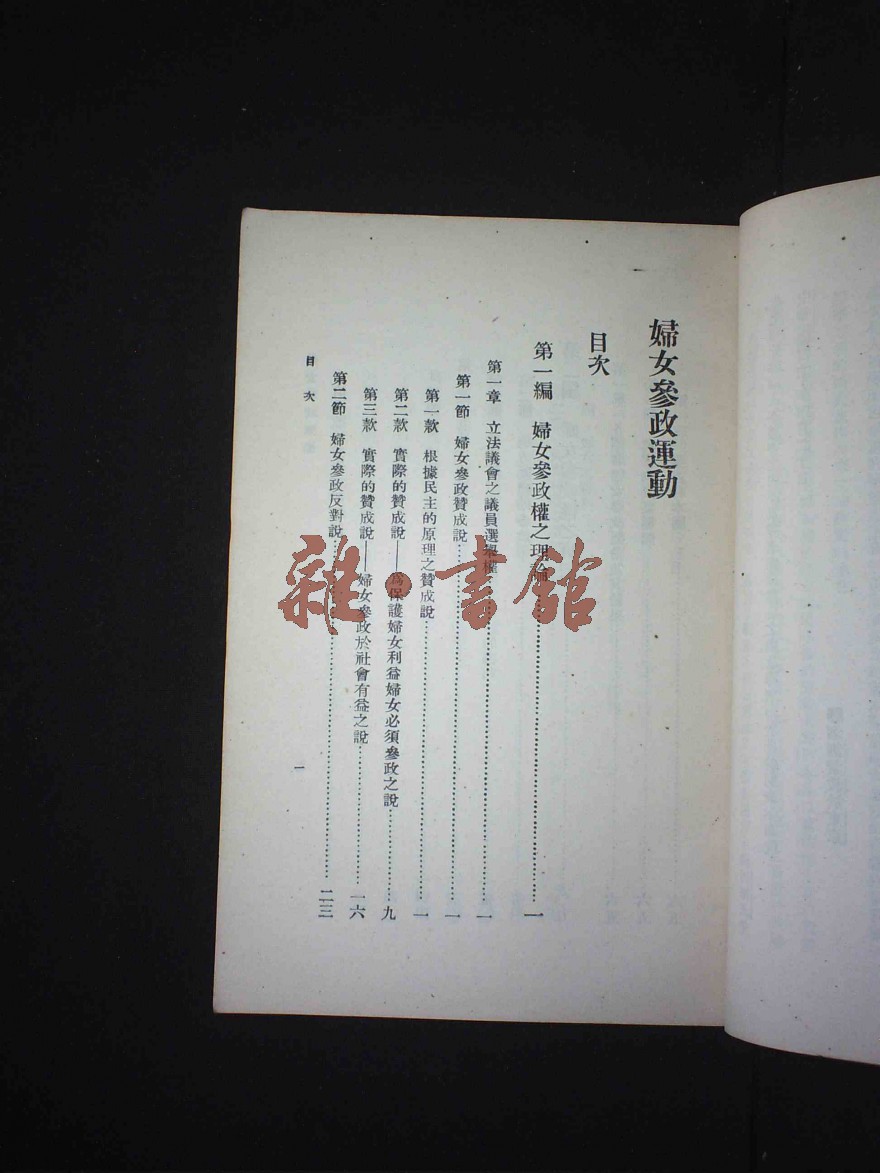 婦女參政運動
目次
第一編　婦女參政權之理論……一
第一章　立法議會之議員選舉權……一
第一節　婦女參政贊成說……一
第一款　根據民主的原理之贊成說……一
第二款　實際的贊成說——爲保護婦女利益婦女必須參政之說……九
第三款　實際的贊成說——婦女參政於社會有益之說……一六
第二節　婦女參政反對說……二三
目次
一
雜·書館